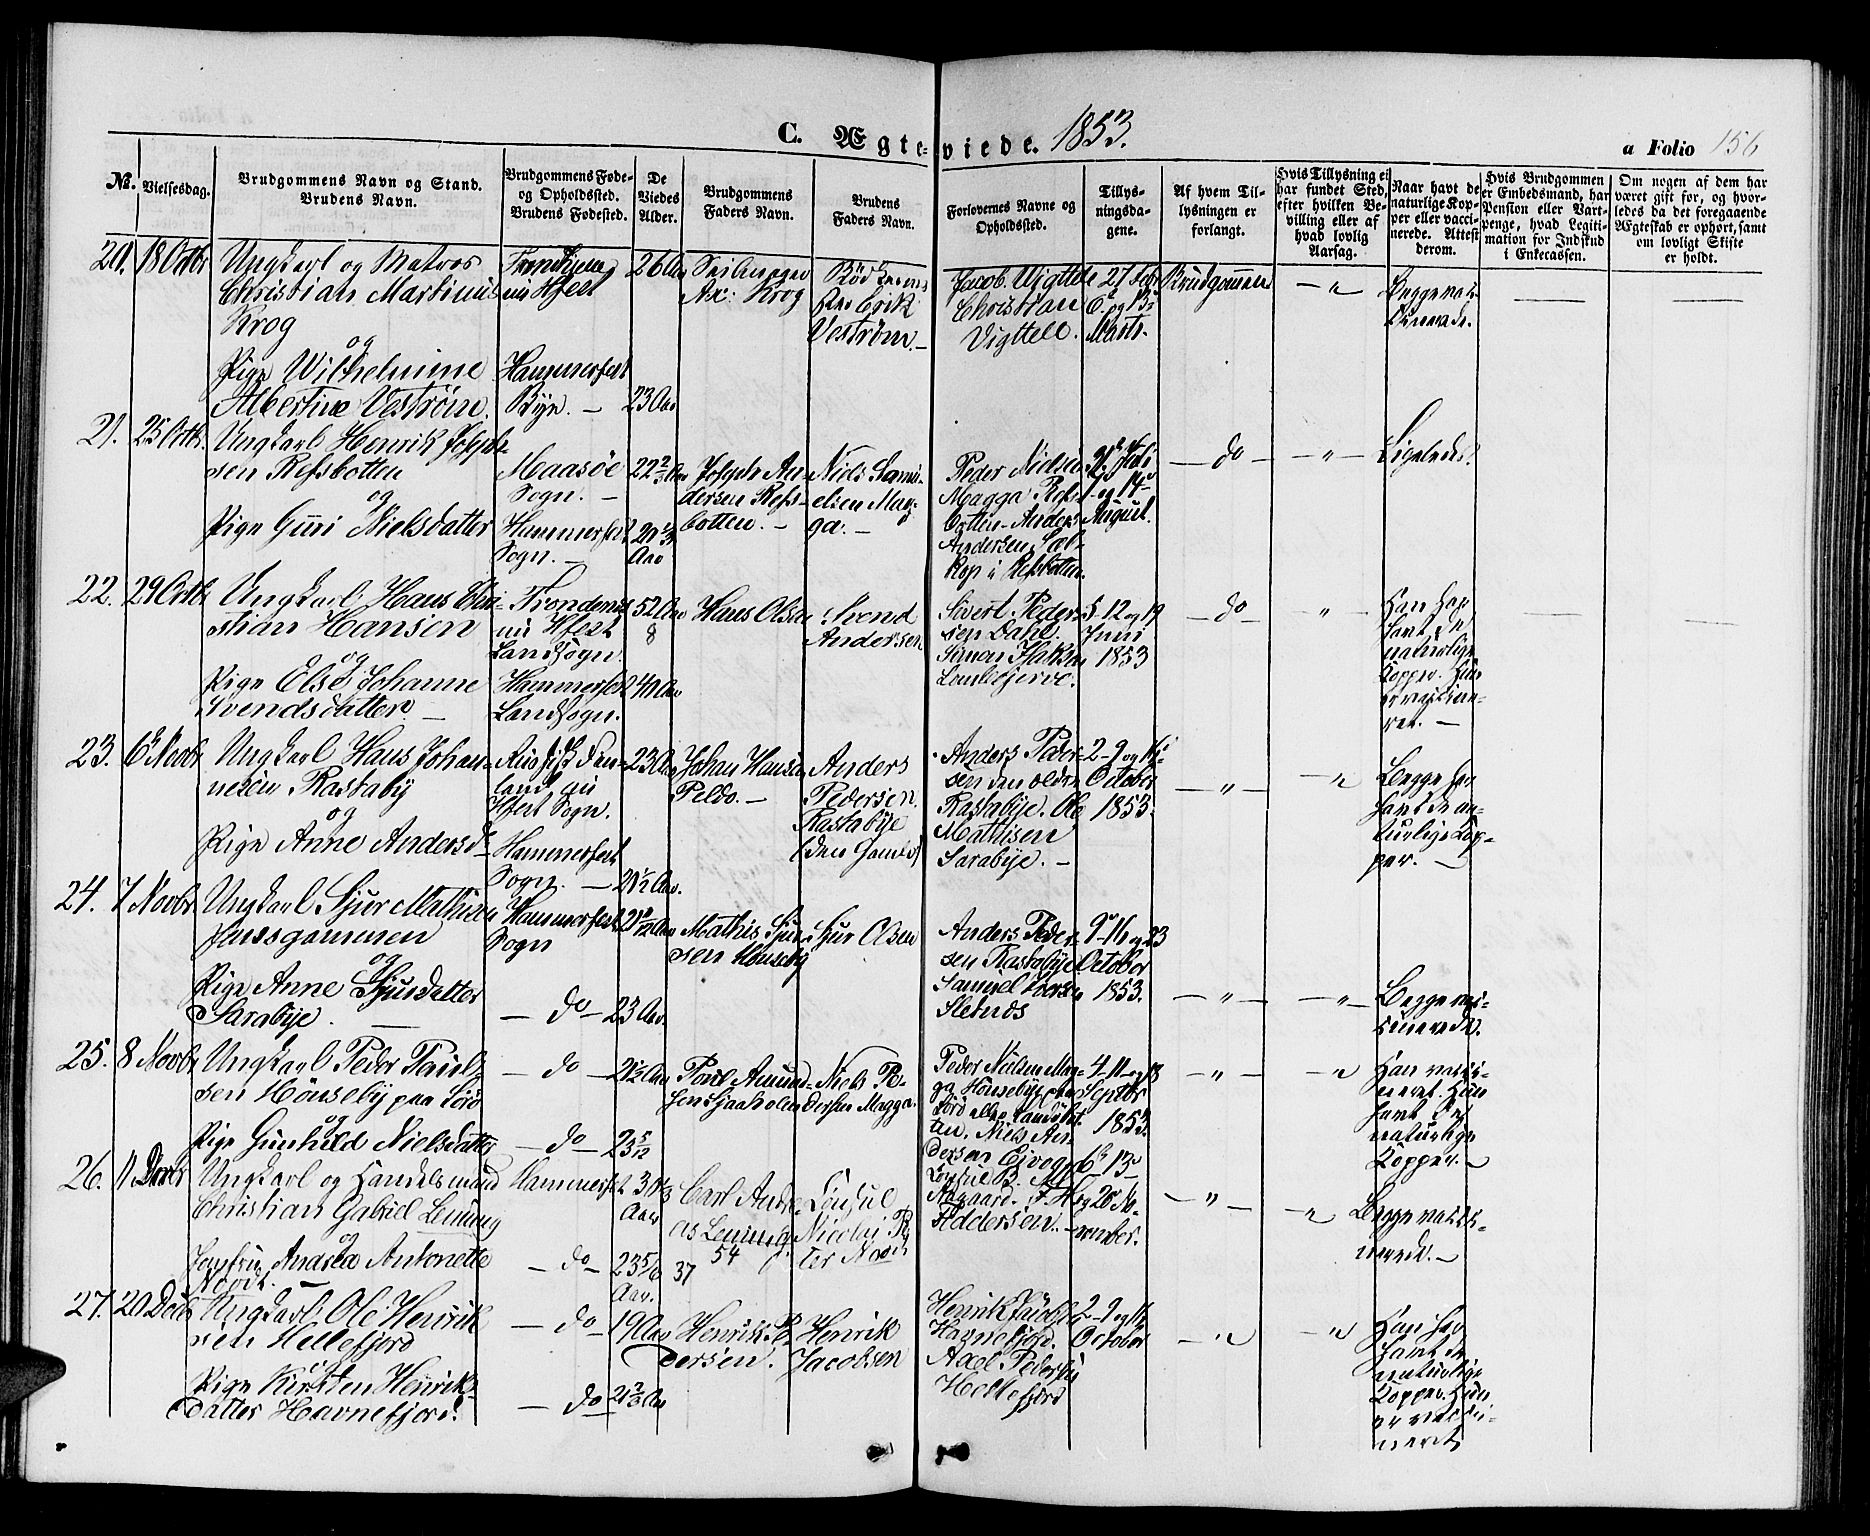 C. Ægte-viede. 1853.
a Folio 156
No.
Vielsesdag.
Brudgommens Navn og Stand.
Brudens Navn.
Brudgommens Føde-
og Opholdssted.
Brudens Fødested.
De
Viedes
Alder.
Brudgommens
Faders Navn.
Brudens
Faders Navn.
Forlovernes Navne og
Opholdssted.
Tillys-
ningsda-
gene.
Af hvem Til-
lysningen er
forlangt.
Hvis Tillysning ei
har fundet Sted,
efter hvilken Be-
villing eller af
hvad lovlig
Aarsag.
Naar havt de
naturlige Kop-
per eller vacci-
nerede. Attest
derom.
Hvis Brudgommen
er Embedsmand, har
Pension eller Vart-
penge, hvad Legiti-
mation for Indskud
i Enkecassen.
Om nogen af dem har
været gift før, og hvor-
ledes da det foregaaende
Ægteskab er ophørt, samt
om lovligt Skifte
er holdt.
20. 18 Octbr
Ungkarl og Matros
Christian Martinus
Krog
og
Pige Wilhelmine
Albertine Vestrøm.
nu Hfest
Hammerfest
Bye. —
26 Aar
23 Aar
Ax: Krog
Erik
Vestrøm. —
Jacob Vigttel
Christian
Vigttell.
27 Febr
6. og 13
Marts.
Brudgommen
— " —
Begge vak-
cinerede.
21. 25 Octbr.
Ungkarl Henrik Joseph-
sen Refsbotten
og
Pige Guri Nielsdatter
Maasøe
Sogn. —
Hammerfest
Sogn. —
22 2/3 Aar
20 1/3
Aar
Joseph An-
dersen Refs-
botten. —
Niels Samu-
elsen Mag-
ga. —
Peder Nielsen
Magga Refs-
botten - Anders
Andersen
i Refsbotten.
Juli
og 14
August.
— do —
— " —
Ligeledes.
22. 29 Octb
Ungkarl Hans Chri-
stian Hansen
og
Pige Else Johanne
Svendsdatter. —
Trondenes
nu Hfest
Landsogn.
Hammerfest
Landsogn.
52 Aar
8
40 Aar
Hans Olsen
Svend
Andersen
Sivert Peder-
sen Dahl.
Simon Isaksen
5 - 12 og 19
Juni
1853
— do —
"
Han har
havt de
naturlige
Kopper. Hun
er vaksine-
ret. —
23. 6 Novbr
Ungkarl Hans Johan-
nesen Rastaby
og
Pige Anne Andersd
Russisk Fin-
land, nu
Hfest Sogn.
Hammerfest
Sogn. —
23 Aar
20 1/2 Aar.
Johan Hansen
Peldo. —
Anders
Pedersen
Rastabye
(den Gamle)
Anders Peder-
sen den eldre
Rastabye. Ole
Mathisen
Sarabye. —
2 - 9 og 16
October
1853.
— " —
— "
Begge har
havt de na-
turlige Kop-
per. —
24. 7 Novbr
Ungkarl Sjur Mathisen
Jansgammen
og
Pige Anne Sjursdatter
Sarabye. —
Hammerfest
Sogn
— do —
23 Aar.
Mathis Sjur-
sen Hønseby
Sjur Olsen
Anders Peder-
sen Rastabye
Samuel Iversen
Sletnes
9 - 16 og 23
October
1853.
— " —
— " —
Begge vak-
sinerede.
25. 8 Novbr
Ungkarl Peder Pauls-
sen Hønseby paa Sørø
og
Pige Gunhild Nielsdatter
— do —
— do —
23 5/12
Poul Amund-
sen Sjaaholen
Niels Pe-
dersen Magga.
Peder Nielsen Mag-
ga Hønsebye paa
Niels An-
dersen
4 - 11 og 18
Septbr
1853.
— " —
— "
Han vaksi-
neret. Hun
havt de
naturlige
Kopper. —
26. 11 Decbr
Ungkarl og Handelsmand
Christian Gabriel Lenning
og
Jomfru Andrea Antonette
Nordt. —
Hammerfest
— do —
Aar
23 5/6
Aar.
37
Carl Andre-
as Lenning
54
Consul
Nicolai Pe-
ter
Consul B. M.
Aagaard. F. H
Feddersen. —
6 - 13
og 20 No-
vember.
— " —
— "
Begge vakci-
nerede. —
27. 20 Decbr
Ungkarl Ole Henrik-
sen Hellefjord
og
Pige Kirsten Henriks-
datter Havnefjord.
— do —
— do —
19 Aar
20 2/3 Aar
Henrik Pe-
dersen.
Henrik
Jacobsen
Henrik Jacobs.
Havnefjord.
Axel Pedersen
Hellefjord
2 - 9 og 16
October
— "
— "
Han har
havt de
naturlige
Kopper. Hun
er vaksi-
neret